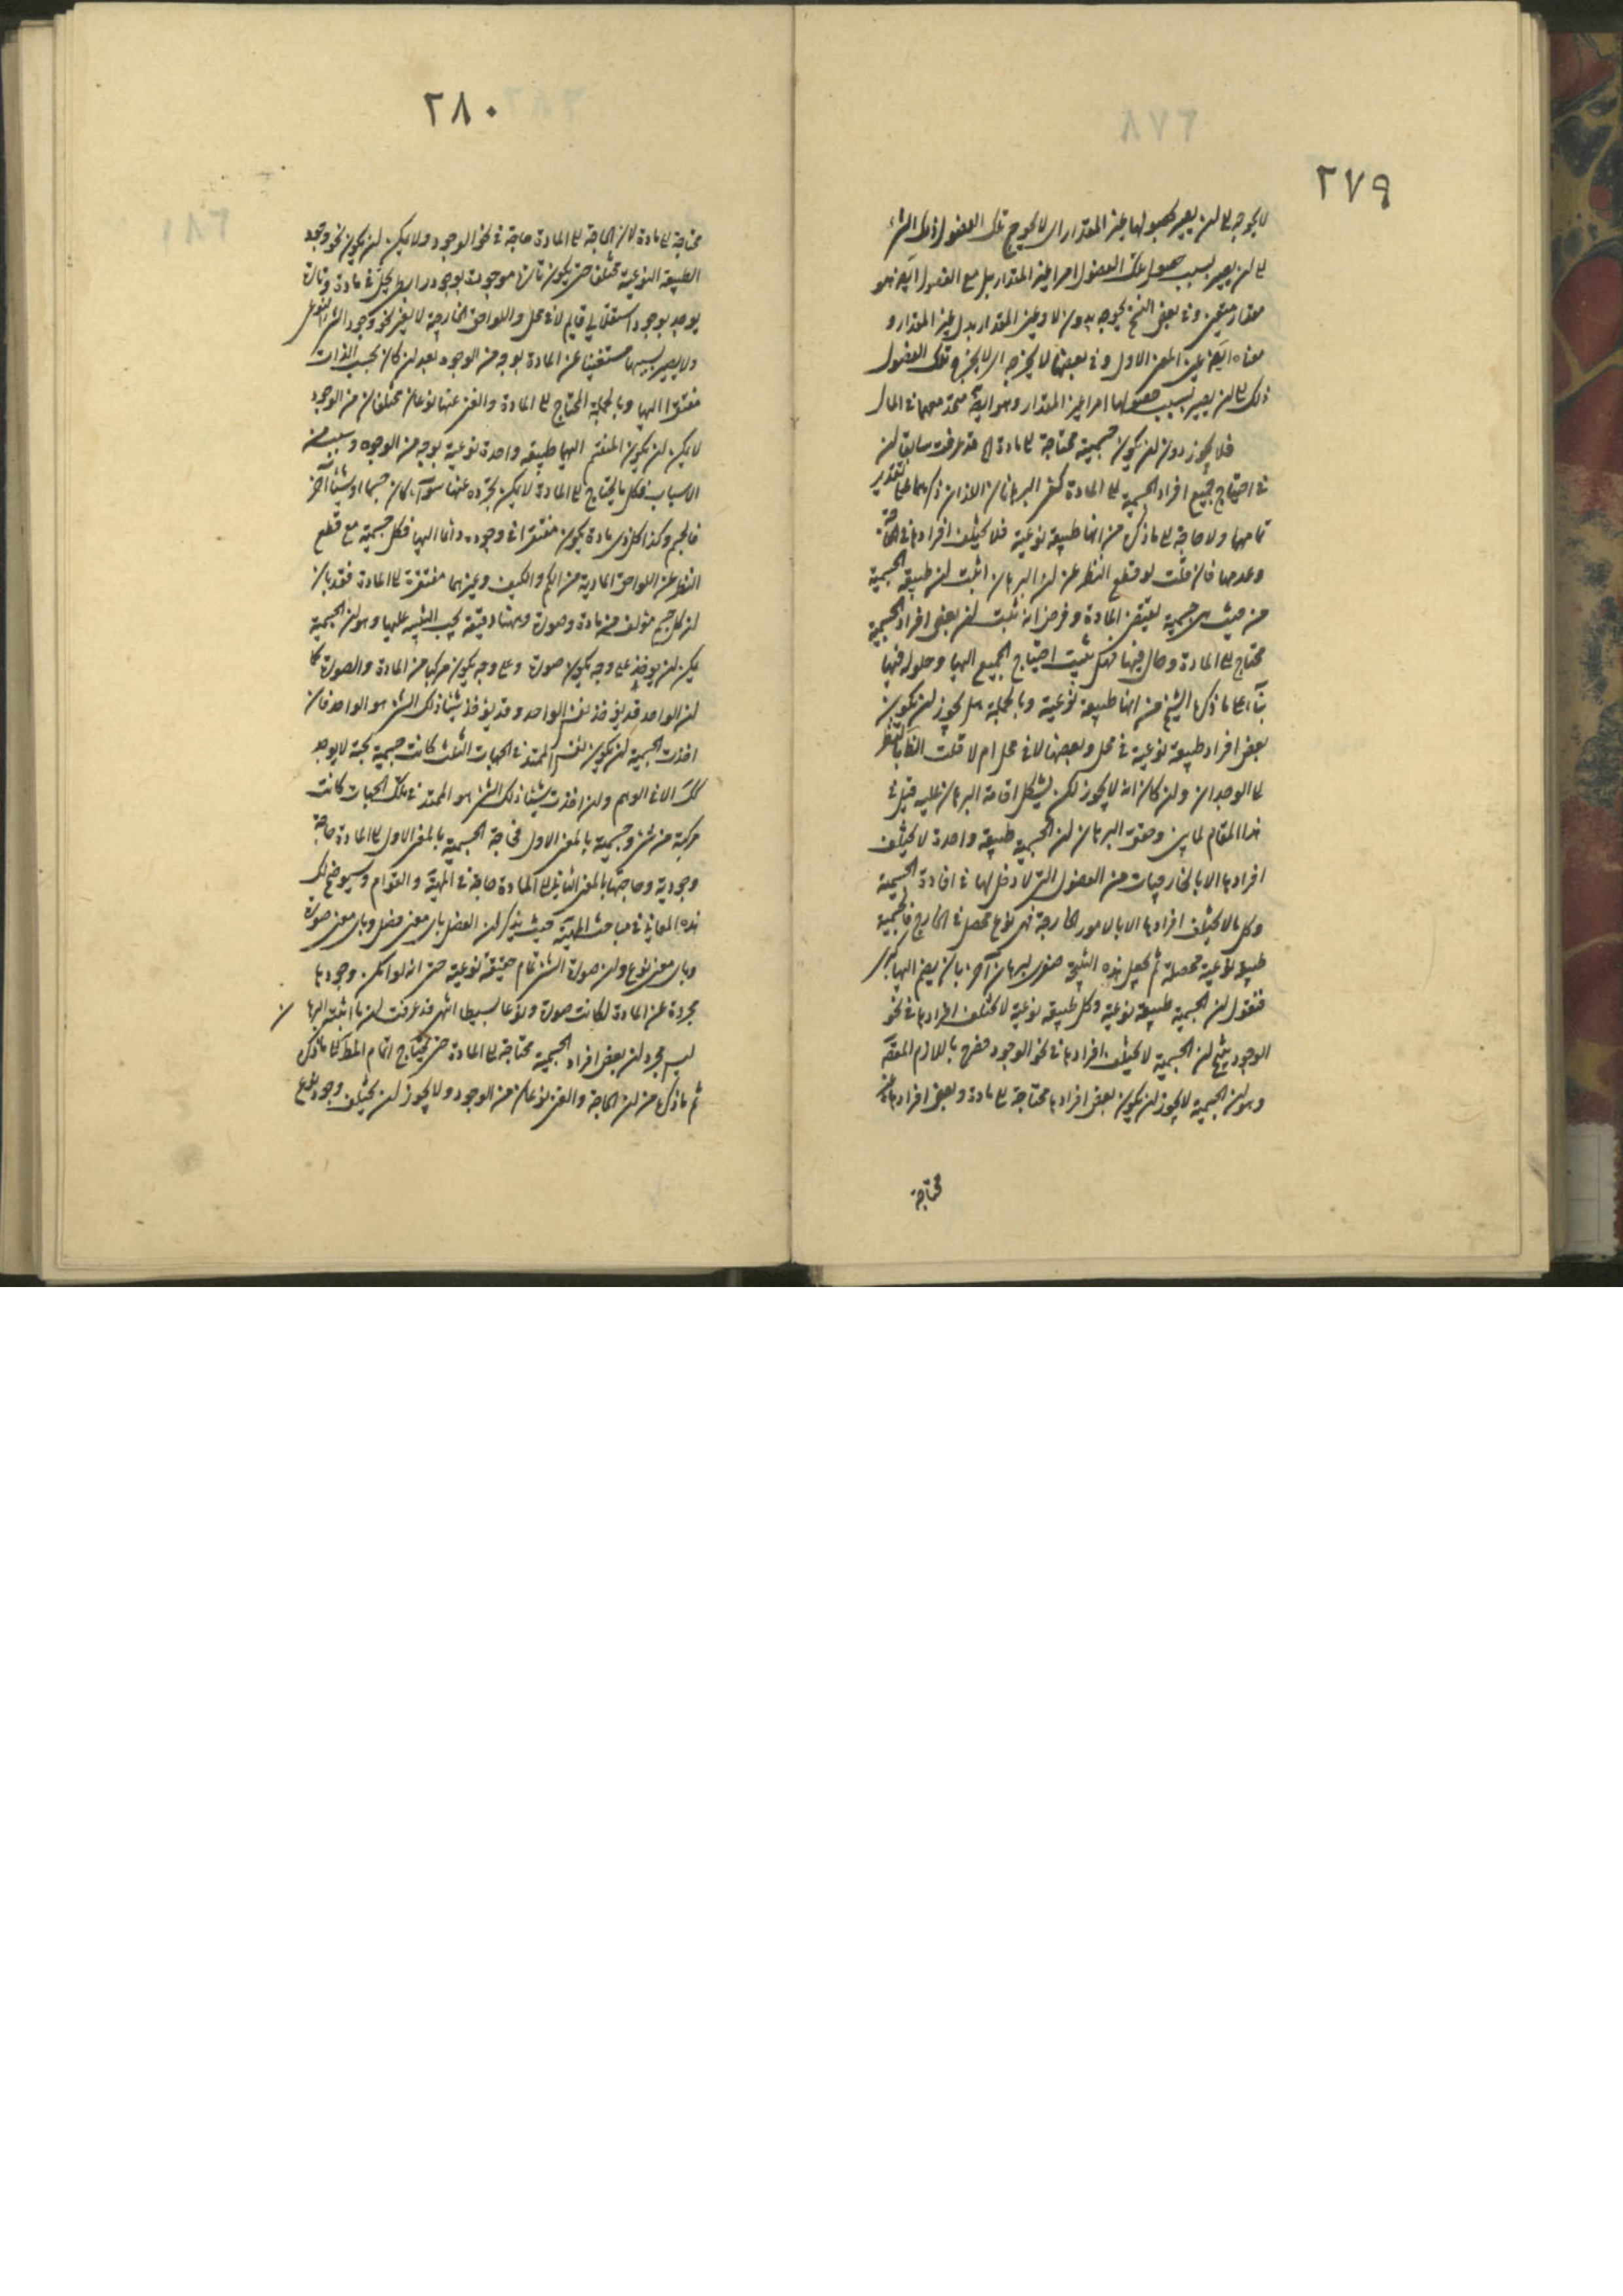 ٢٧٩
لا يحوجه الى ان يصير بحصولها غير المقدار اى لا يحوج تلك الفصول ذلك الشئ
الى ان يصير بسبب حصول تلك الفصول امرا غير المقدار بل مع الفصول ايضا هو
مقدار متعين وفى بعض النسخ يحوجه بدون لا وعين المقدار بدل غير المقدار و
معناه ايضا عين المعنى الاول وفى بعضها لا يخرجه اى لا يخرج تلك الفصول
ذلك الى ان يصير بسبب حصولها امرا غير المقدار وهو ايضا متحد معهما فى المآل
فلا يجوز دون ان يكون جسمية محتاجة الى مادة الخ قد عرفت سابقا ان
فى احتياج جميع افراد الجسمية الى المادة كفى البرهانان اللذان ذكرهما على تقدير
تمامهما ولا حاجة الى ما ذكره من انها طبيعة نوعية فلا يختلف افرادها فى الحاجة
وعدمها فان قلت لو قطع النظر عن ان البرهان اثبت ان طبيعة الجسمية
من حيث هى جسمية يقتضى المادة وفرض انه يثبت ان بعض افراد الجسمية
محتاج الى المادة وحال فيها فهل يثبت احتياج الجميع اليها وحلولها فيها
بناء على ما ذكره الشيخ من انها طبيعة نوعية وبالجملة هل يجوز ان يكون
بعض افراد طبيعة نوعية فى محل وبعضها لا فى محل ام لا قلت الظاهر بالنظر
الى الوجدان وان كان انه لا يجوز لكن يشكل اقامة البرهان عليه قيل فى
هذا المقام لما بين وحقق البرهان ان الجسمية طبيعة واحدة لا يختلف
افرادها الا بالخارجيات من الفصول التى لا دخل لها فى افادة الجسمية
وكل ما لا يختلف افرادها الا بالامور الخارجة فهى نوع محصل فى الخارج فالجسمية
طبيعة نوعية محصلة ثم نجعل هذه النتيجة صغرى لبرهان آخر بان يضم اليها كبرى
فنقول ان الجسمية طبيعة نوعية وكل طبيعة نوعية لا تختلف افرادها فى نحو
الوجود ينتج ان الجسمية لا يختلف افرادها فى نحو الوجود فصرح باللازم المقصود
وهو ان الجسمية لا يجوز ان يكون بعض افرادها محتاجة الى مادة وبعض افرادها غير
محتاجة
٢٨٠
محتاجة الى مادة لان الحاجة الى المادة حاجة فى نحو الوجود ولا يمكن ان يكون نحو وجود
الطبيعة النوعية مختلفا حتى يكون تارة موجودة بوجود رابطى يحل فى مادة وتارة
يوجد بوجود استقلالى قايم لا فى محل واللواحق الخارجة لا يغير نحو وجود الشئ النوعى
ولا يصير بسببها مستغنيا عن المادة بوجه من الوجوه بعد ان كان بحسب الذات
مفتقرا اليها وبالجملة المحتاج الى المادة والغنى عنها نوعان مختلفان من الوجود
لا يمكن ان يكون المنقسم اليهما طبيعة واحدة نوعية بوجه من الوجوه وسبب من
الاسباب فكل ما يحتاج الى المادة لا يمكن تجرده عنها سواء كان جسما او شيئا آخر
فالجسم وكذا كل ذى مادة يكون مفتقرا فى وجوده دائما اليها فكل جسمية مع قطع
النظر عن اللواحق المادية من الكم والكيف وغيرهما مفتقرة الى المادة فقد بان
ان كل جسم مؤلف من مادة وصورة وههنا دقيقة يجب التنبيه عليها وهو ان الجسمية
يمكن ان يؤخذ على وجه يكون صورة وعلى وجه يكون مركبا من المادة والصورة كما
ان الواحد قد يؤخذ نفس الواحد وقد يؤخذ شيئا ذلك الشئ هو الواحد فان
اخذت الجسمية ان يكون نفس الممتد فى الجهات الثلث كانت جسمية بحتة لا يوجد
كك الا فى الوهم وان اخذت شيئا ذلك الشئ هو الممتد فى تلك الجهات كانت
مركبة من شئ وجسمية بالمعنى الاول فحاجة الجسمية بالمعنى الاول الى المادة حاجة
وجودية وحاجتها بالمعنى الثانى الى المادة حاجة فى المهية والقوام وسيوضح لك
هذه المعانى فى مباحث المهية حيث يذكر ان الفصل باى معنى فصل وباى معنى صورة
وباى معنى نوع وان صورة الشئ تمام حقيقة نوعية حتى انه لو امكن وجودها
مجردة عن المادة لكانت صورة ونوعا بسيطا انتهى قد عرفت ان ما اثبته البرهان
ليس مجرد ان بعض افراد الجسمية محتاجة الى المادة حتى يحتاج اتمام المط الى ما ذكره
ثم ما ذكره من ان الحاجة والغنى نوعان من الوجود ولا يجوز ان يختلف وجود نوع